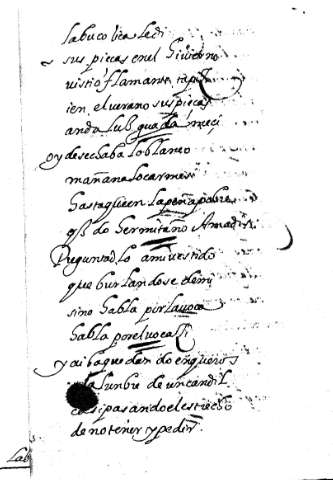 la bucolica le di
sus piezas en el Givierno
vistio flamante tapiz
i en el verano sus piezas
anda lus guada meci
oy desechaba lo blanco
mañana lo carmesi
hasta q̃ en la peña pobre
q̃ do hermitaño Amadis
Preguntadlo a mi vestido
que burlandose de mi
sino habla por la voca
habla por el vocasi
y ai ba quedando en queros
la lunbre de un candil
casi pasando el estrecho
de no tener y pedir
Lab